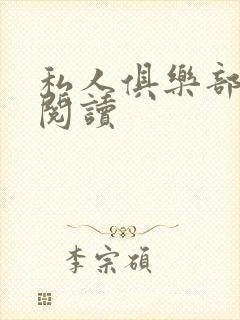 私人俱樂部
閱讀
李宗碩